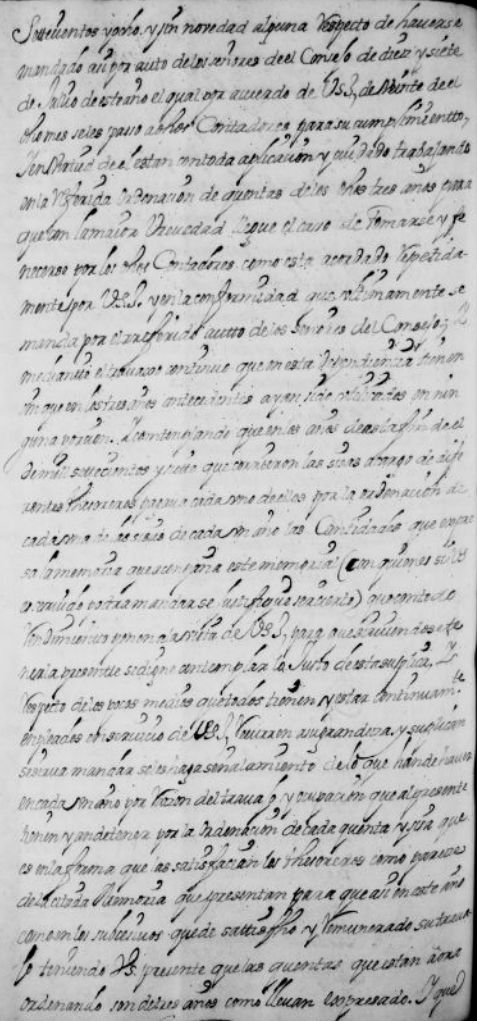 Settecientos y ocho. y sin novedad alguna Respecto de haverse
mandado asi por auto de los señores de el Consejo de diez y siete
de Jullio de este año el qual por acuerdo de VSS, de Veinte de el
dho mes se les paso a dhos Contadores para su cumplimientto,
Y en Virtud de el estan con toda aplicacion y cuidado trabajando
en la Referida Ordenazion de quentas de los dhos tres años para
que con la maior Brevedad llegue el caso de Tomarse y fe
necerse por los dhos Contadores como esta acordado Repetida-
mente por VSS, y en la conformidad que ultimamente se
manda por el referido autto de los señores del Consejo, Y
mediante el travajo continuo que en esta dependienzia tienen
sin que en los tres años antecedentes ayan sido en nin
guna porcion. Y contemplando que en los años de hasta fin de el
de mill settecientos y ocho que corrieron las sisas a cargo de dife
rentes thesoreros por la ordenazion de
cada una de las sisas de cada un año las Cantidades que expre
sa la memoria que acompaña este memorial (con quienes si VSS
es servido podra mandar se justifique ser cierto) que con todo
Rendimiento ponen a la vista de VSS, para que sirviendose te
nerla presente se digne contemplar lo Justo de esta suplica, Y
Respecto de los pocos medios que todos tienen y estar continuamte
enpleados en servicio de VSS, Recurren a su grandeza. y suplican
se sirva mandar se les haga señalamiento de lo que han de haver
en cada un año por Razon del travajo y ocupacion que al presente
tienen y an de tener por la ordenazion de cada quenta y sisa que
es en la forma que las satisfacian los thesoreros como pareze
de la citada Memoria que presentan para que asi en este año
como en los subcesivos quede sattisfho y Remunerado su trava
jo teniendo VS. presente que las quentas que estan aora
ordenando son de tres años como llevan expresado. Y que